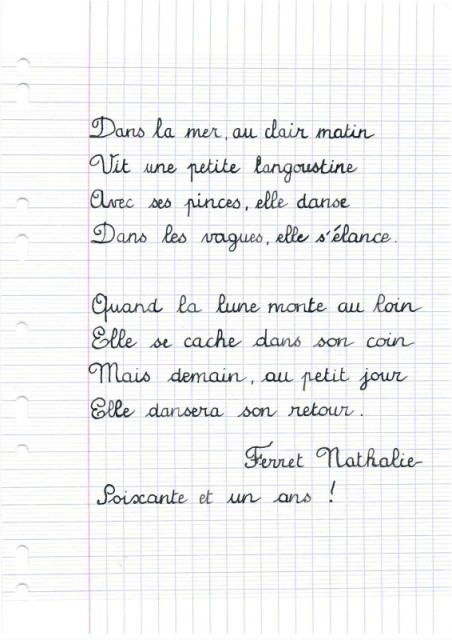 Dans la mer, au clair matin
Vit une petite langoustine
Avec ses pinces, elle danse
Dans les vagues, elle s'élance.
Quand la lune monte au loin
Elle se cache dans son coin
Mais demain, au petit jour
Elle dansera son retour.
Ferret Nathalie
Soixante et un ans !